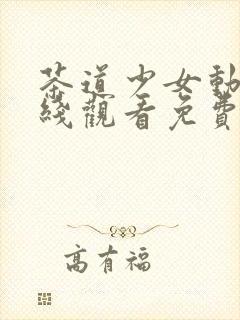 茶道少女動
綫觀看免費
高有福